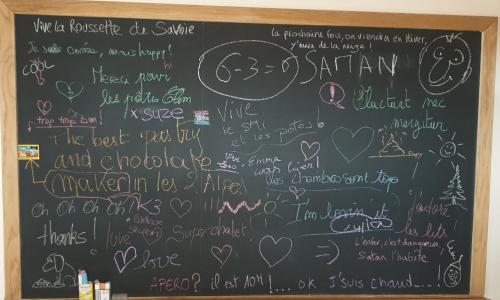 Vive la Roussette de Savoie
la prochaine fois, on viendra en Hiver,
y'aura de la neige !
Je suis carrée, mais happy !
COOL
6-3=0 SATAN
Merci pour
les p'tits
x suze
trop trop bien !
Vive
le ski
et les potos
Fluctuat nec
mergitur
The best pastry
and chocolate
maker in les 2 Alpes
Emma
was here !
les chambres sont top
Oh Oh Oh Oh
love
I'm lovin' it
j'adore
les lits
thanks !
Super chalet !
L'enfer, c'est dangereux
Satan l'habite
love
APERO ? il est 10H !... OK J'suis chaud...!